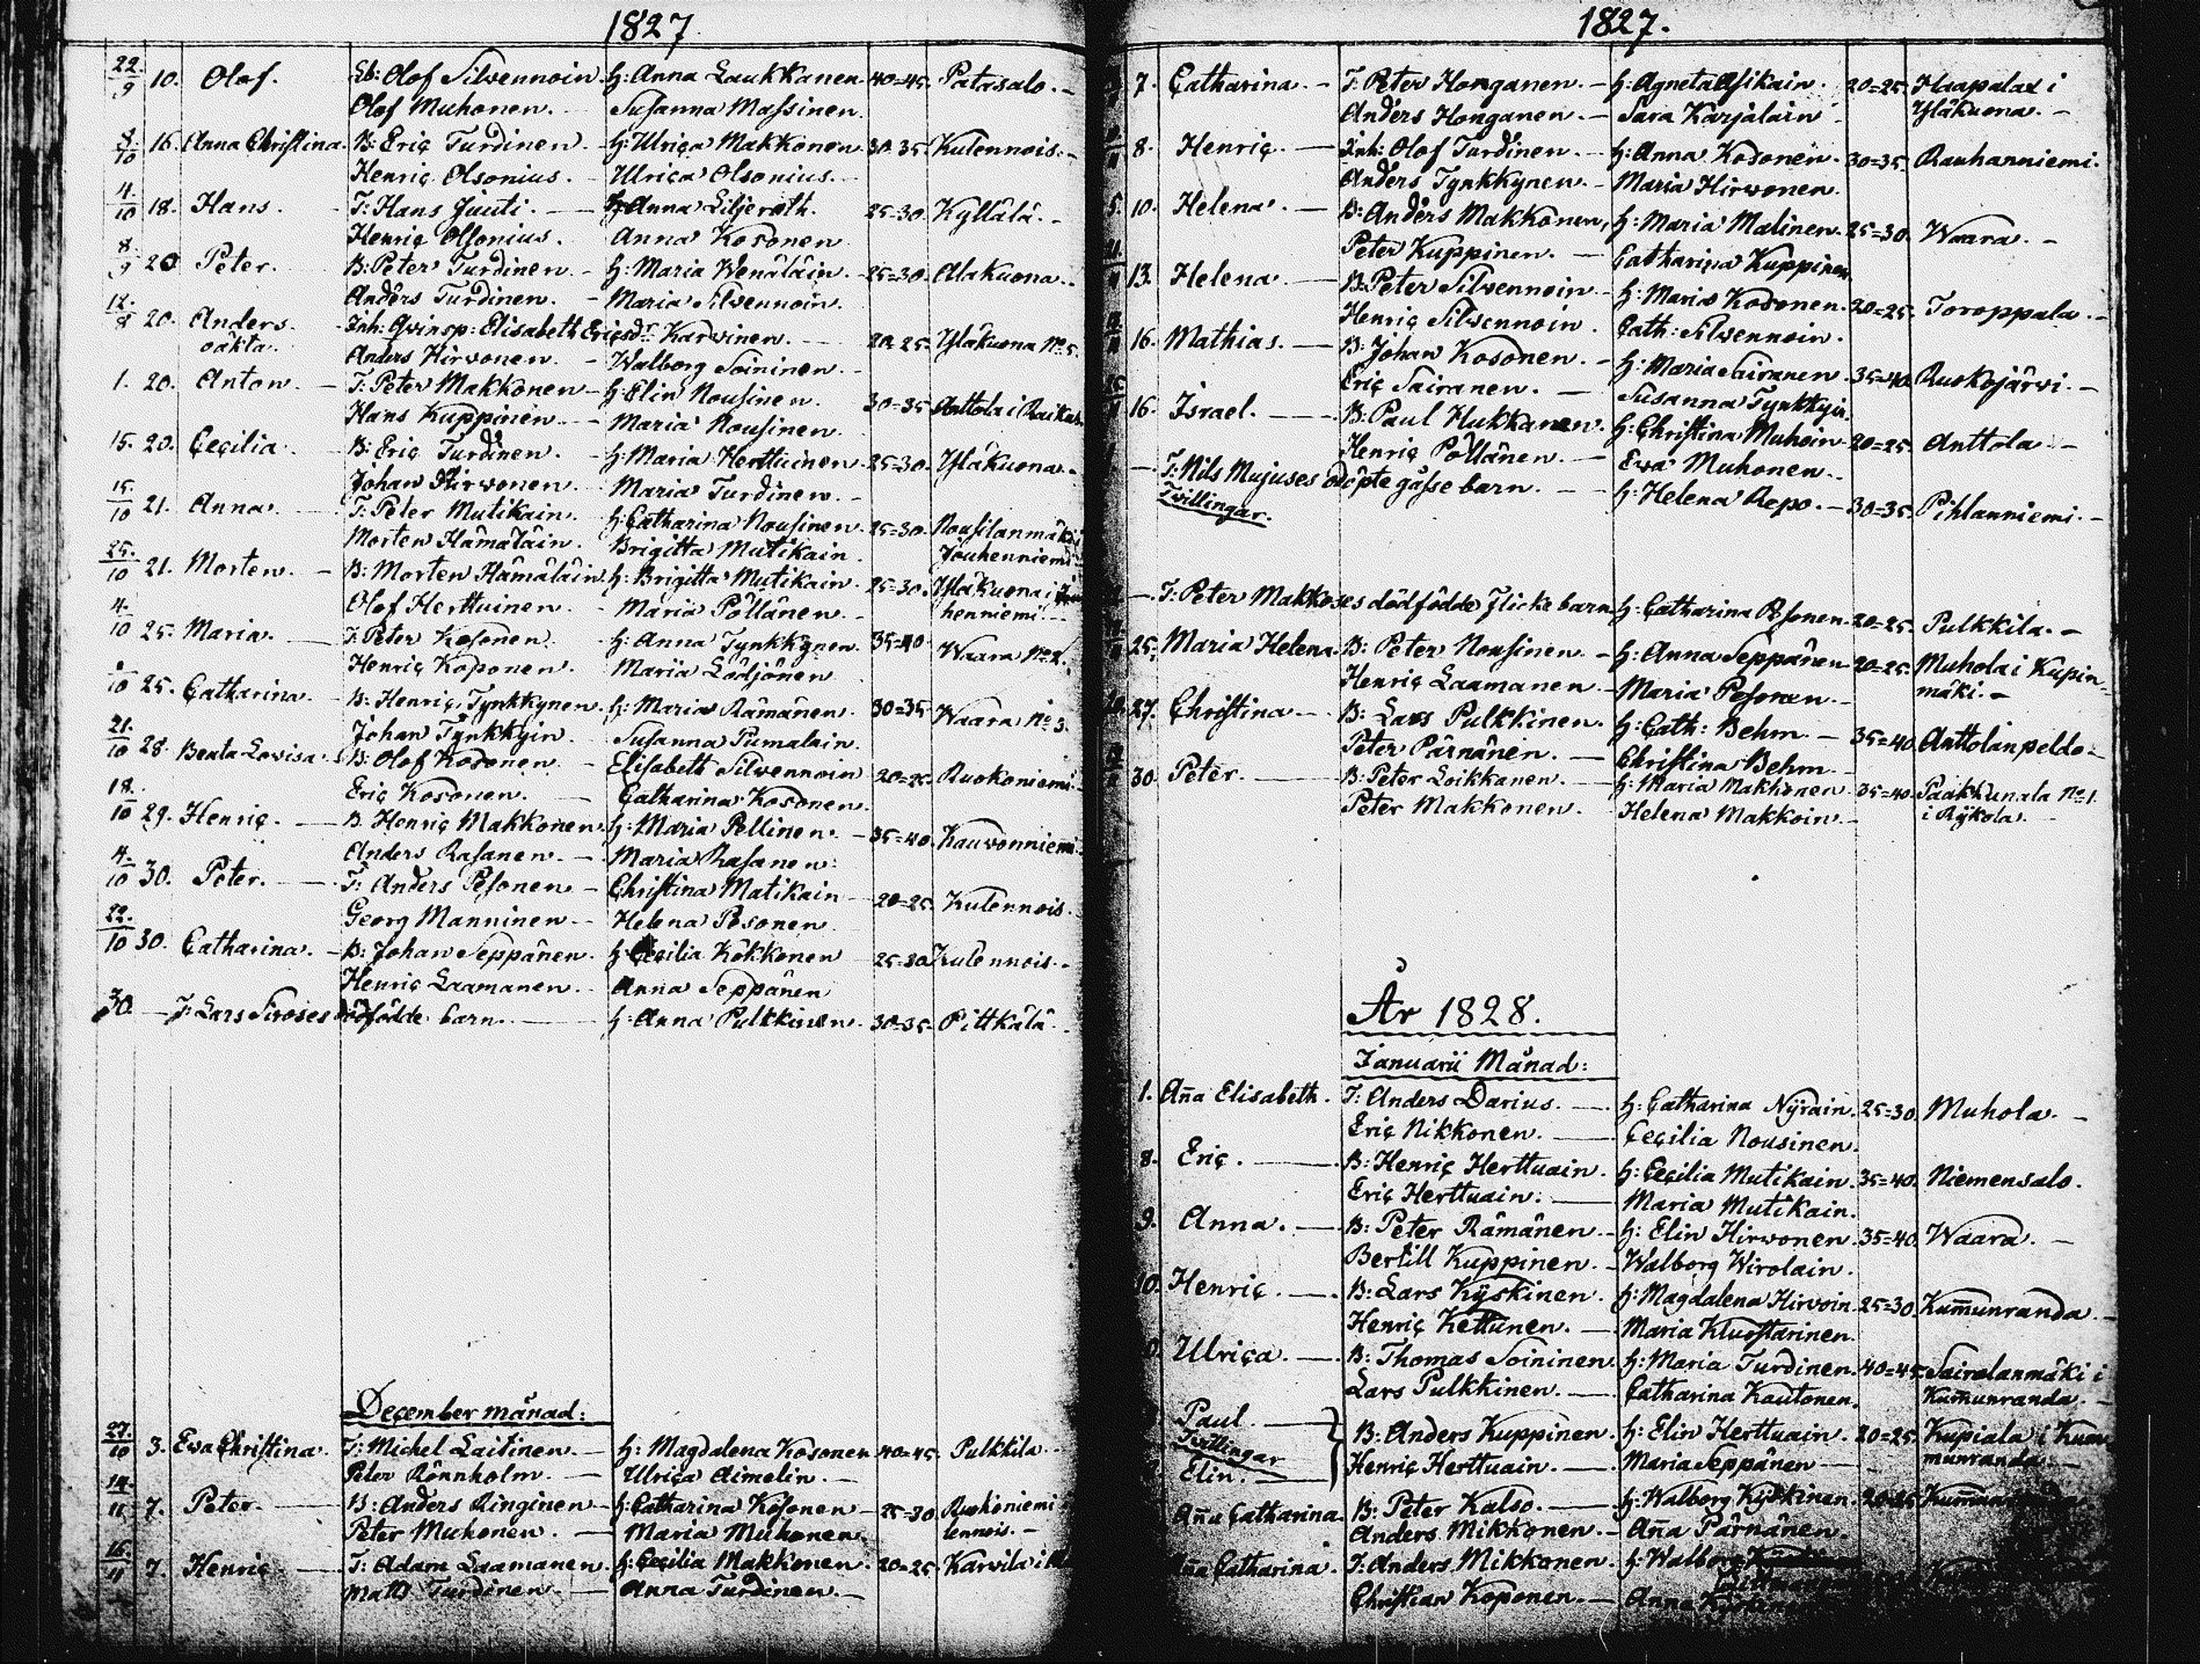 1827
22/9 10. Olof. Eb: Olof Silvennoin. h: Anna Laukkanen. 40=45. Patasalo. -
Olof Muhonen. Susanna Massinen.
8/10 16. Anna Christina. B: Eric Turdinen. h: Ulrica Makkonen. 30=35. Kutennois. -
Henric Olsonius. Ulrica Olsonius.
4/10 18. Hans. T: Hans Juuti. h: Anna Liljeroth. 25=30. Kyllälä. -
Henric Olsonius. Anna Kosonen
8/9 20 Peter. B: Peter Turdinen. h: Maria Wenäläin. 25=30. Alakuona.
Anders Turdinen. Maria Silvennoin.
12/8 20. Anders Inh: Qvinsp: Elisabeth Ericsdr Karvinen. 20=25. Yläkuona No 5.
oäkta. Anders Hirvonen. Walborg Soininen.
1. 20. Anton. T: Peter Makkonen h: Elin Nousinen. 30=35 Anttola i
Hans Kuppinen Maria Nousinen
15. 20. Cecilia. B: Eric Turdinen. h: Maria Herttuinen. 25=30. Yläkuona.
Johan Hirvonen Maria Turdinen.
15/10 21. Anna. T: Peter Mutikain. h: Catharina Nousinen. 25=30. Nousilanmäki
Morten Hämäläin. Brigitta Mutikain Jouhenniemi
25/10 21. Morten. B: Morten Hämäläin. h: Brigitta Mutikain. 25=30. Yläkuona i
Olof Herttuinen. Maria Pöllänen. henniemi.
4/10 25. Maria. T: Peter Kosonen. h: Anna Tynkkynen 35=40. Waara No 2.
Henric Koponen. Maria Lödjönen
10 25. Catharina. B: Henric Tynkkynen. h: Maria Rämänen. 30=35 Waara No 3.
Johan Tynkkyin. Susanna Pumalain.
21/10 28. Beata Lovisa B: Olof Kosonen Elisabeth Silvennoin 20=25. Ruokoniemi
Eric Kosonen. Catharina Kosonen.
18/10 29. Henric. B. Henric Makkonen. h: Maria Pellinen. 35=40. Kauvonniemi
Anders Rasanen. Maria Rasanen.
4/10 30. Peter. T: Anders Pesonen Christina Matikain 20=25. Kutennois.
Georg Manninen Helena Pesonen
22/10 30. Catharina. B: Johan Seppänen. h: Cecilia Kokkonen 25=30 Kutennois.
Henric Laamanen Anna Seppänen
30. T: Lars Siroses dödfödde barn. h: Anna Pulkkinen. 30=35. Pittkälä.
December månad:
27/10 3. Ewa Christina. T: Michel Laitinen. h: Magdalena Kosonen 40=45. Pulkkila
Peter Rönnholm. Ulrica Aimelin.
14/11 7. Peter. B: Anders Ringinen h: Catharina Kosonen 25=30 Ruokoniemi
Peter Muhonen. Maria Muhonen lennois. -
16/11 7. Henric T: Adam Laamanen h: Cecilia Makkonen 20=25 Karvila i
Matts Turdinen Anna Turdinen.
1827.
7. Catharina. T: Peter Honganen. h: Agneta Asikain. 20=25. Haapalax i
Anders Honganen. Sara Karjalain Yläkuona. -
8. Henric. Inh: Olof Turdinen. h: Anna Kosonen. 30=35. Rauhanniemi.
Anders Tynkkynen. Maria Hirvonen.
10. Helena. B: Anders Makkonen, h: Maria Malinen. 25=30. Waara. -
Peter Kuppinen. Catharina Kuppinen
13. Helena B: Peter Silvennoin h: Maria Kosonen. 20=25. Toroppala. -
Henric Silvennoin. Cath: Silvennoin.
16. Mathias. B: Johan Kosonen. h: Maria Sairanen. 35=40. Ruokojärvi. -
Eric Sairanen. Susanna Tynkkyin.
16. Israel. B: Paul Hukkanen. h: Christina Muhoin 20=25. Anttola. -
Henric Pöllänen. Ewa Muhonen.
T: Nils Mujuses odöpte gåsse barn. h: Helena Repo. 30=35. Pihlanniemi. -
Tvillingar.
T: Peter Makkoses dödfödde Flicke barn h: Catharina Pesonen 20=25. Pulkkila. -
25. Maria Helena B: Peter Nousinen. h: Anna Seppänen 20=25. Muhola i Kupin-
Henric Laamanen. Maria Pesonen. mäki. -
27. Christina B: Lars Pulkkinen. h: Cath: Behm. 35=40. Anttolanpeldo
Peter Pärnänen. Christina Behm
30. Peter B: Peter Loikkanen. h: Maria Makkonen 35=40. Paakkunala No 1.
Peter Makkonen. Helena Makkoin. i Rÿkola.
År 1828.
Januarii Månad:
1. Ana Elisabeth. T: Anders Darius. h: Catharina Nÿrain. 25=30. Muhola. -
Eric Nikkonen. Cecilia Nousinen.
8. Eric. B: Henric Herttuain. h: Cecilia Mutikain. 35=40. Niemensalo.
Eric Herttuain. Maria Mutikain.
9. Anna. B: Peter Rämänen h: Elin Hirvonen. 35=40. Waara. -
Bertill Kuppinen. Walborg Wirolain.
10. Henric. B: Lars Kÿskinen. h: Magdalena Hirvoin. 25=30. Kum̄unranda. -
Henric Kettunen. Maria Kluostarinen.
Ulrica. B: Thomas Soininen. h: Maria Turdinen. 40=45. Sairalanmäki i
Lars Pulkkinen. Catharina Kautonen. Kum̄unranda. -
Paul. B: Anders Kuppinen. h: Elin Herttuain. 20=25. Kupiala i Kum
Tvillingar
Elin. Henric Herttuain. Maria Seppänen munranda. -
An̄a Catharina. B: Peter Kalso. h: Walborg Kÿskinen. 20=25
Anders Mikkonen. An̄a Pärnänen.
Catharina T: Anders Mikkonen. h: Walborg
Christian Koponen. Anna